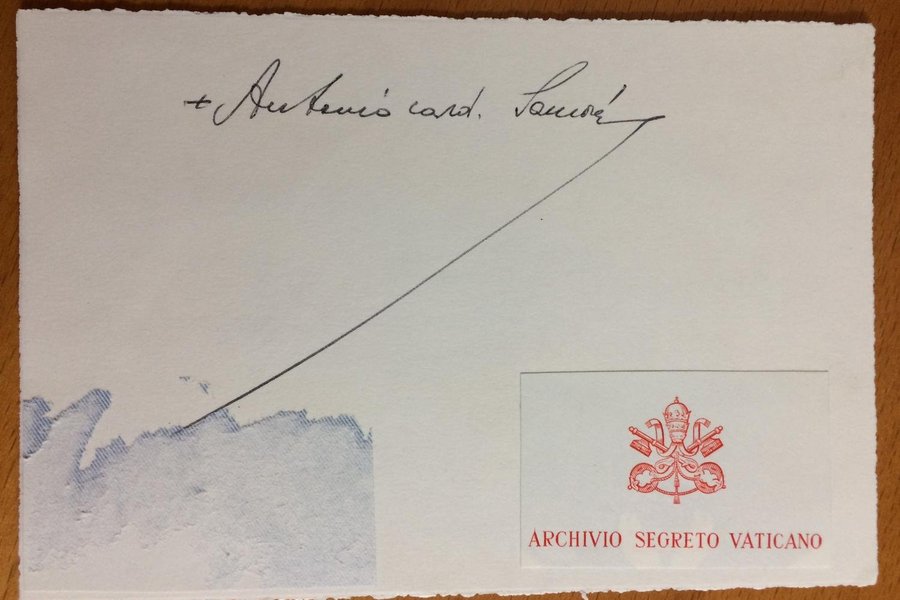 + Antonio card. Samorè
ARCHIVIO SEGRETO VATICANO